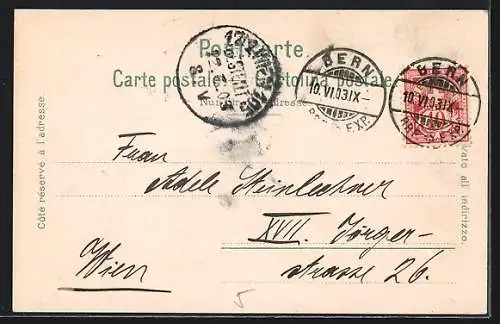 Postkarte.
Carte postale. Cartolina postale.
Nur für die Adresse
Côté réservé à l'adresse.
BERN
10.VI.03.IX–
BERN
10.VI.03.IX–
10
Frau
Adele Steinlechner
XVII. Jörger-
strasse 26.
Wien
5